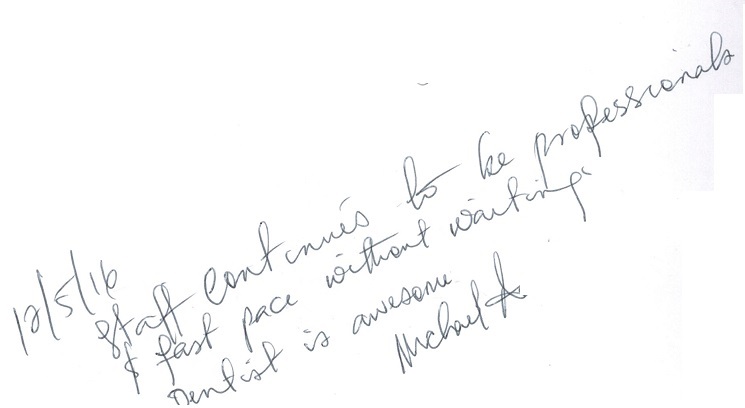 12/5/16
Staff continues to be professionals
& fast pace without waiting.
Dentist is awesome
Michael A